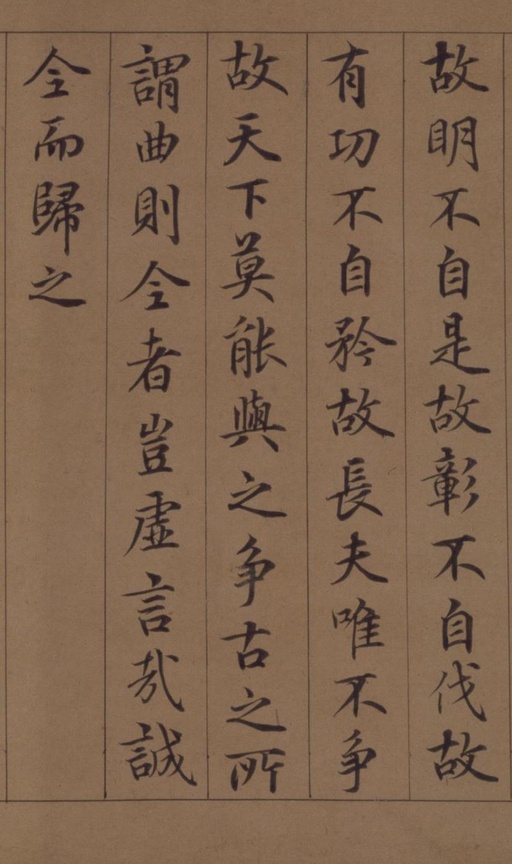 故明不自是故彰不自伐故
有功不自矜故長夫唯不争
故天下莫能與之争古之所
謂曲則全者豈虚言哉誠
全而歸之